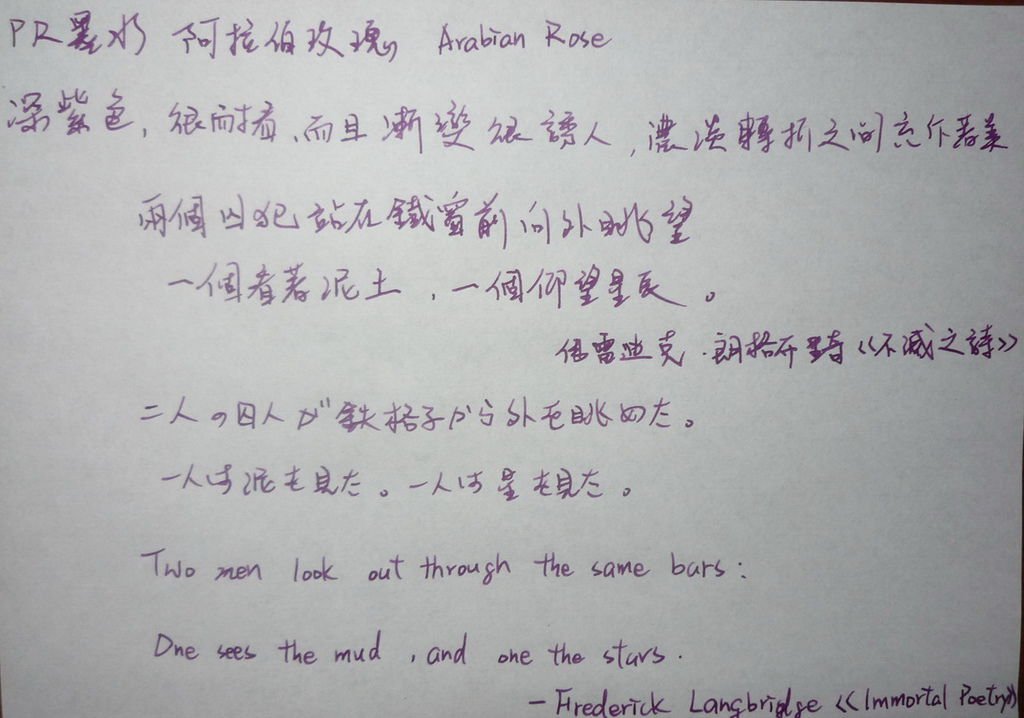 PR墨水 阿拉伯玫瑰 Arabian Rose
深紫色,很耐看,而且漸變很誘人,濃淡轉折之間
兩個囚犯站在鐵窗前向外眺望
一個看著泥土,一個仰望星辰。
雷迪克·朗格布里奇《不滅之詩》
二人の囚人が鉄格子から外を眺めた。
一人は泥を見た。一人は星を見た。
Two men look out through the same bars:
One sees the mud, and one the stars.
- Frederick Langbridge 《Immortal Poetry》